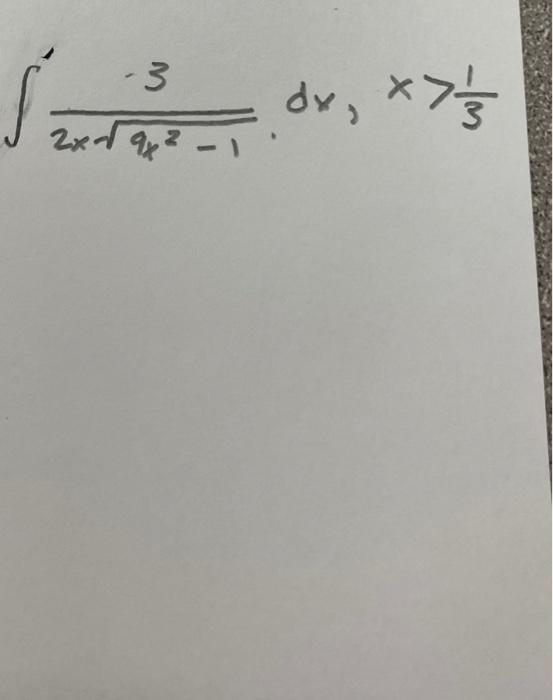 ∫ -3 / (2x√(9x² - 1)) dx, x > 1/3